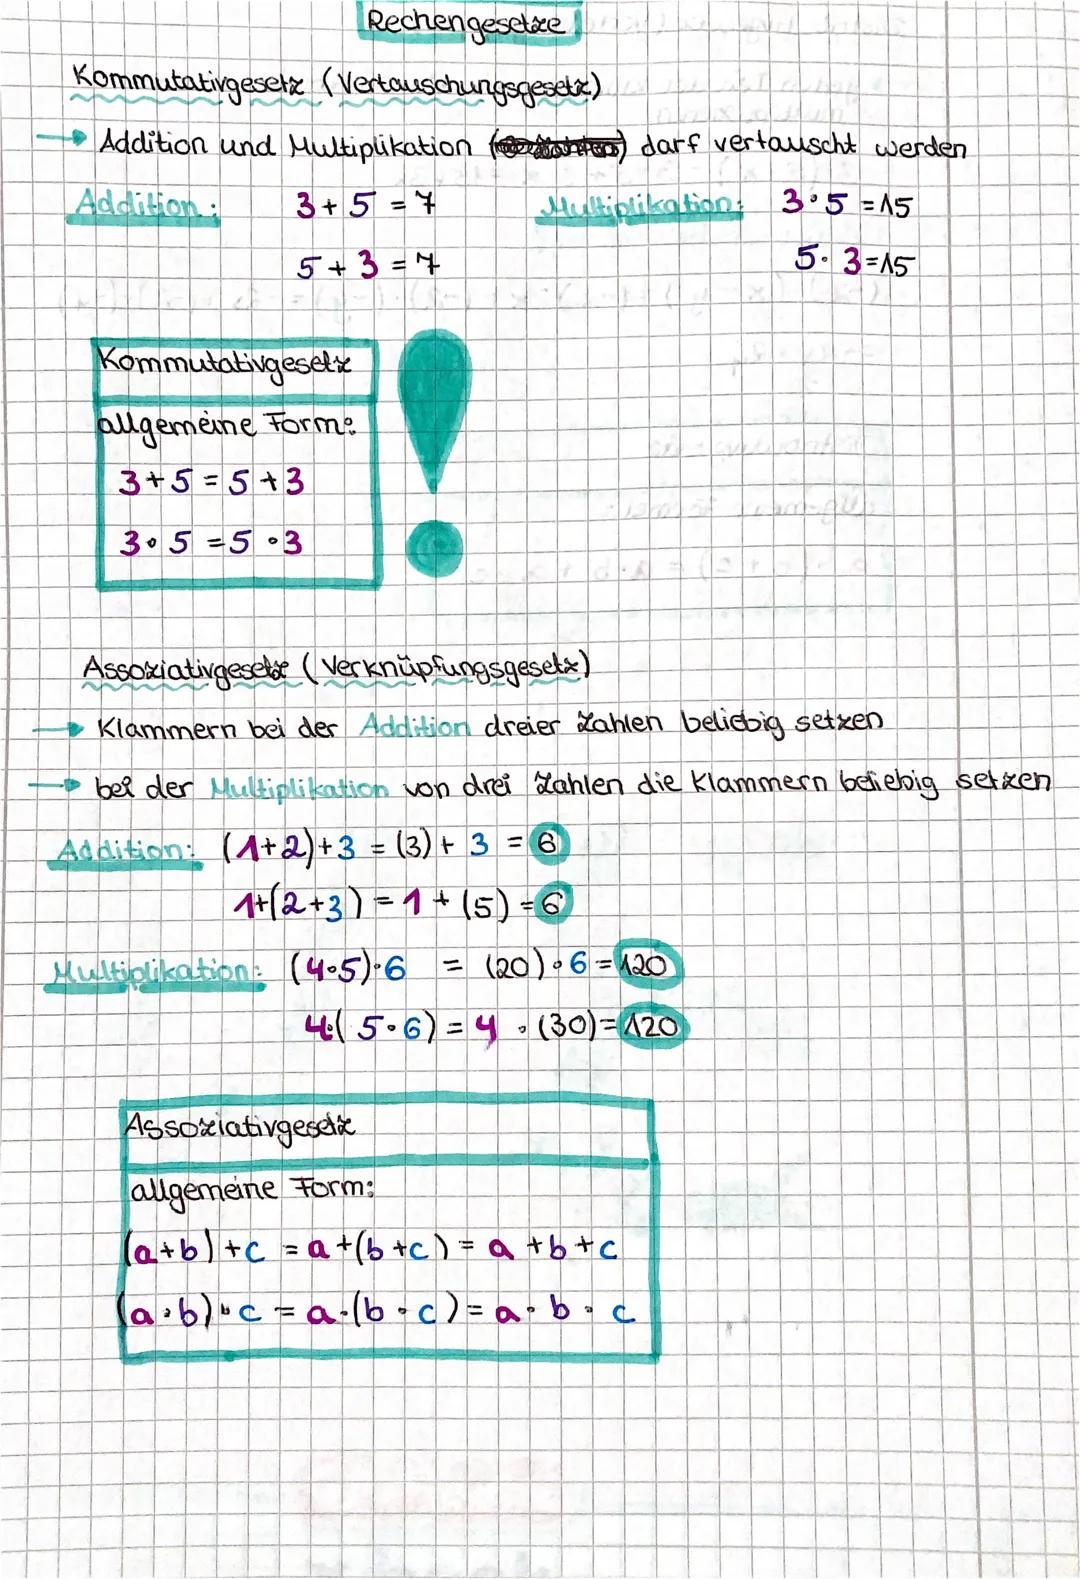 Rechengesetze
Kommutativgesetz (Vertauschungsgesetz)
→ Addition und Multiplikation darf vertauscht werden
Addition: 3+5=7 Multiplikation: 3·5=15
5+3=7 5·3=15
Kommutativgesetz
allgemeine Form:
3+5=5+3
3·5=5·3
!
Assoziativgesetz (Verknüpfungsgesetz)
→ Klammern bei der Addition dreier Zahlen beliebig setzen
→ bei der Multiplikation von drei Zahlen die Klammern beliebig setzen
Addition: (1+2)+3 = (3)+3 = 6
1+(2+3) = 1+(5) = 6
Multiplikation: (4·5)·6 = (20)·6=120
4·(5·6) = 4·(30)=120
Assoziativgesetz
allgemeine Form:
(a+b)+c = a+(b+c) = a+b+c
(a·b)·c = a·(b·c) = a·b·c